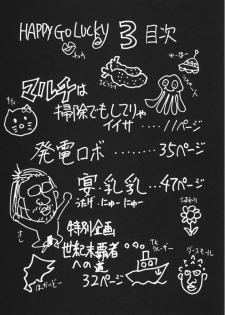 HAPPY GO LUCKY 3 目次
マルチは
掃除でもしてりゃ
イイサ・・・・11ページ
発電ロボ・・・・・35ページ
宴・乳乳・・・47ページ
うたげ・にゅーにゅー
特別企画
世紀末覇者
への道
32ページ